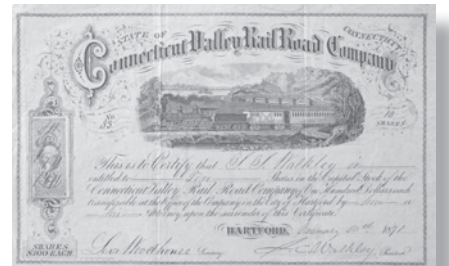 STATE OF CONNECTICUT
Connecticut Valley Rail Road Company
No 55
10 SHARES
This is to Certify that S. S. Walkley is
entitled to Shares in the Capital Stock of the
Connecticut Valley Rail Road Company, One Hundred Dollars each
transferable at the Agency of the Company in the City of Hartford by
Attorney upon the surrender of this Certificate.
HARTFORD, 1871
SHARES $100 EACH
Secretary President